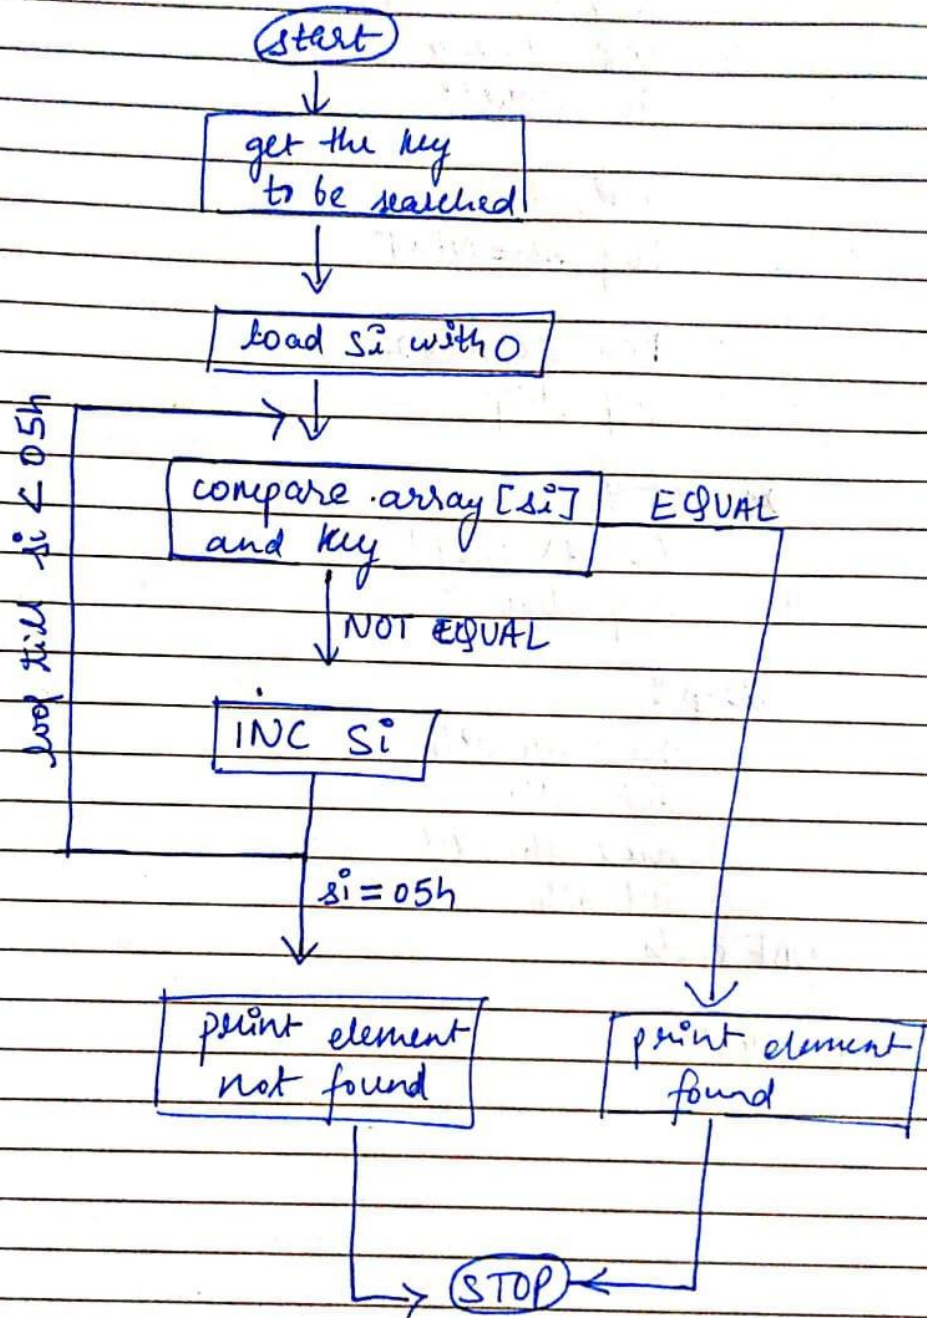 start
get the key
to be searched
load si with 0
loop till si < 05h
compare array [si]
and key
EQUAL
NOT EQUAL
INC Si
si = 05h
print element
not found
print element
found
STOP